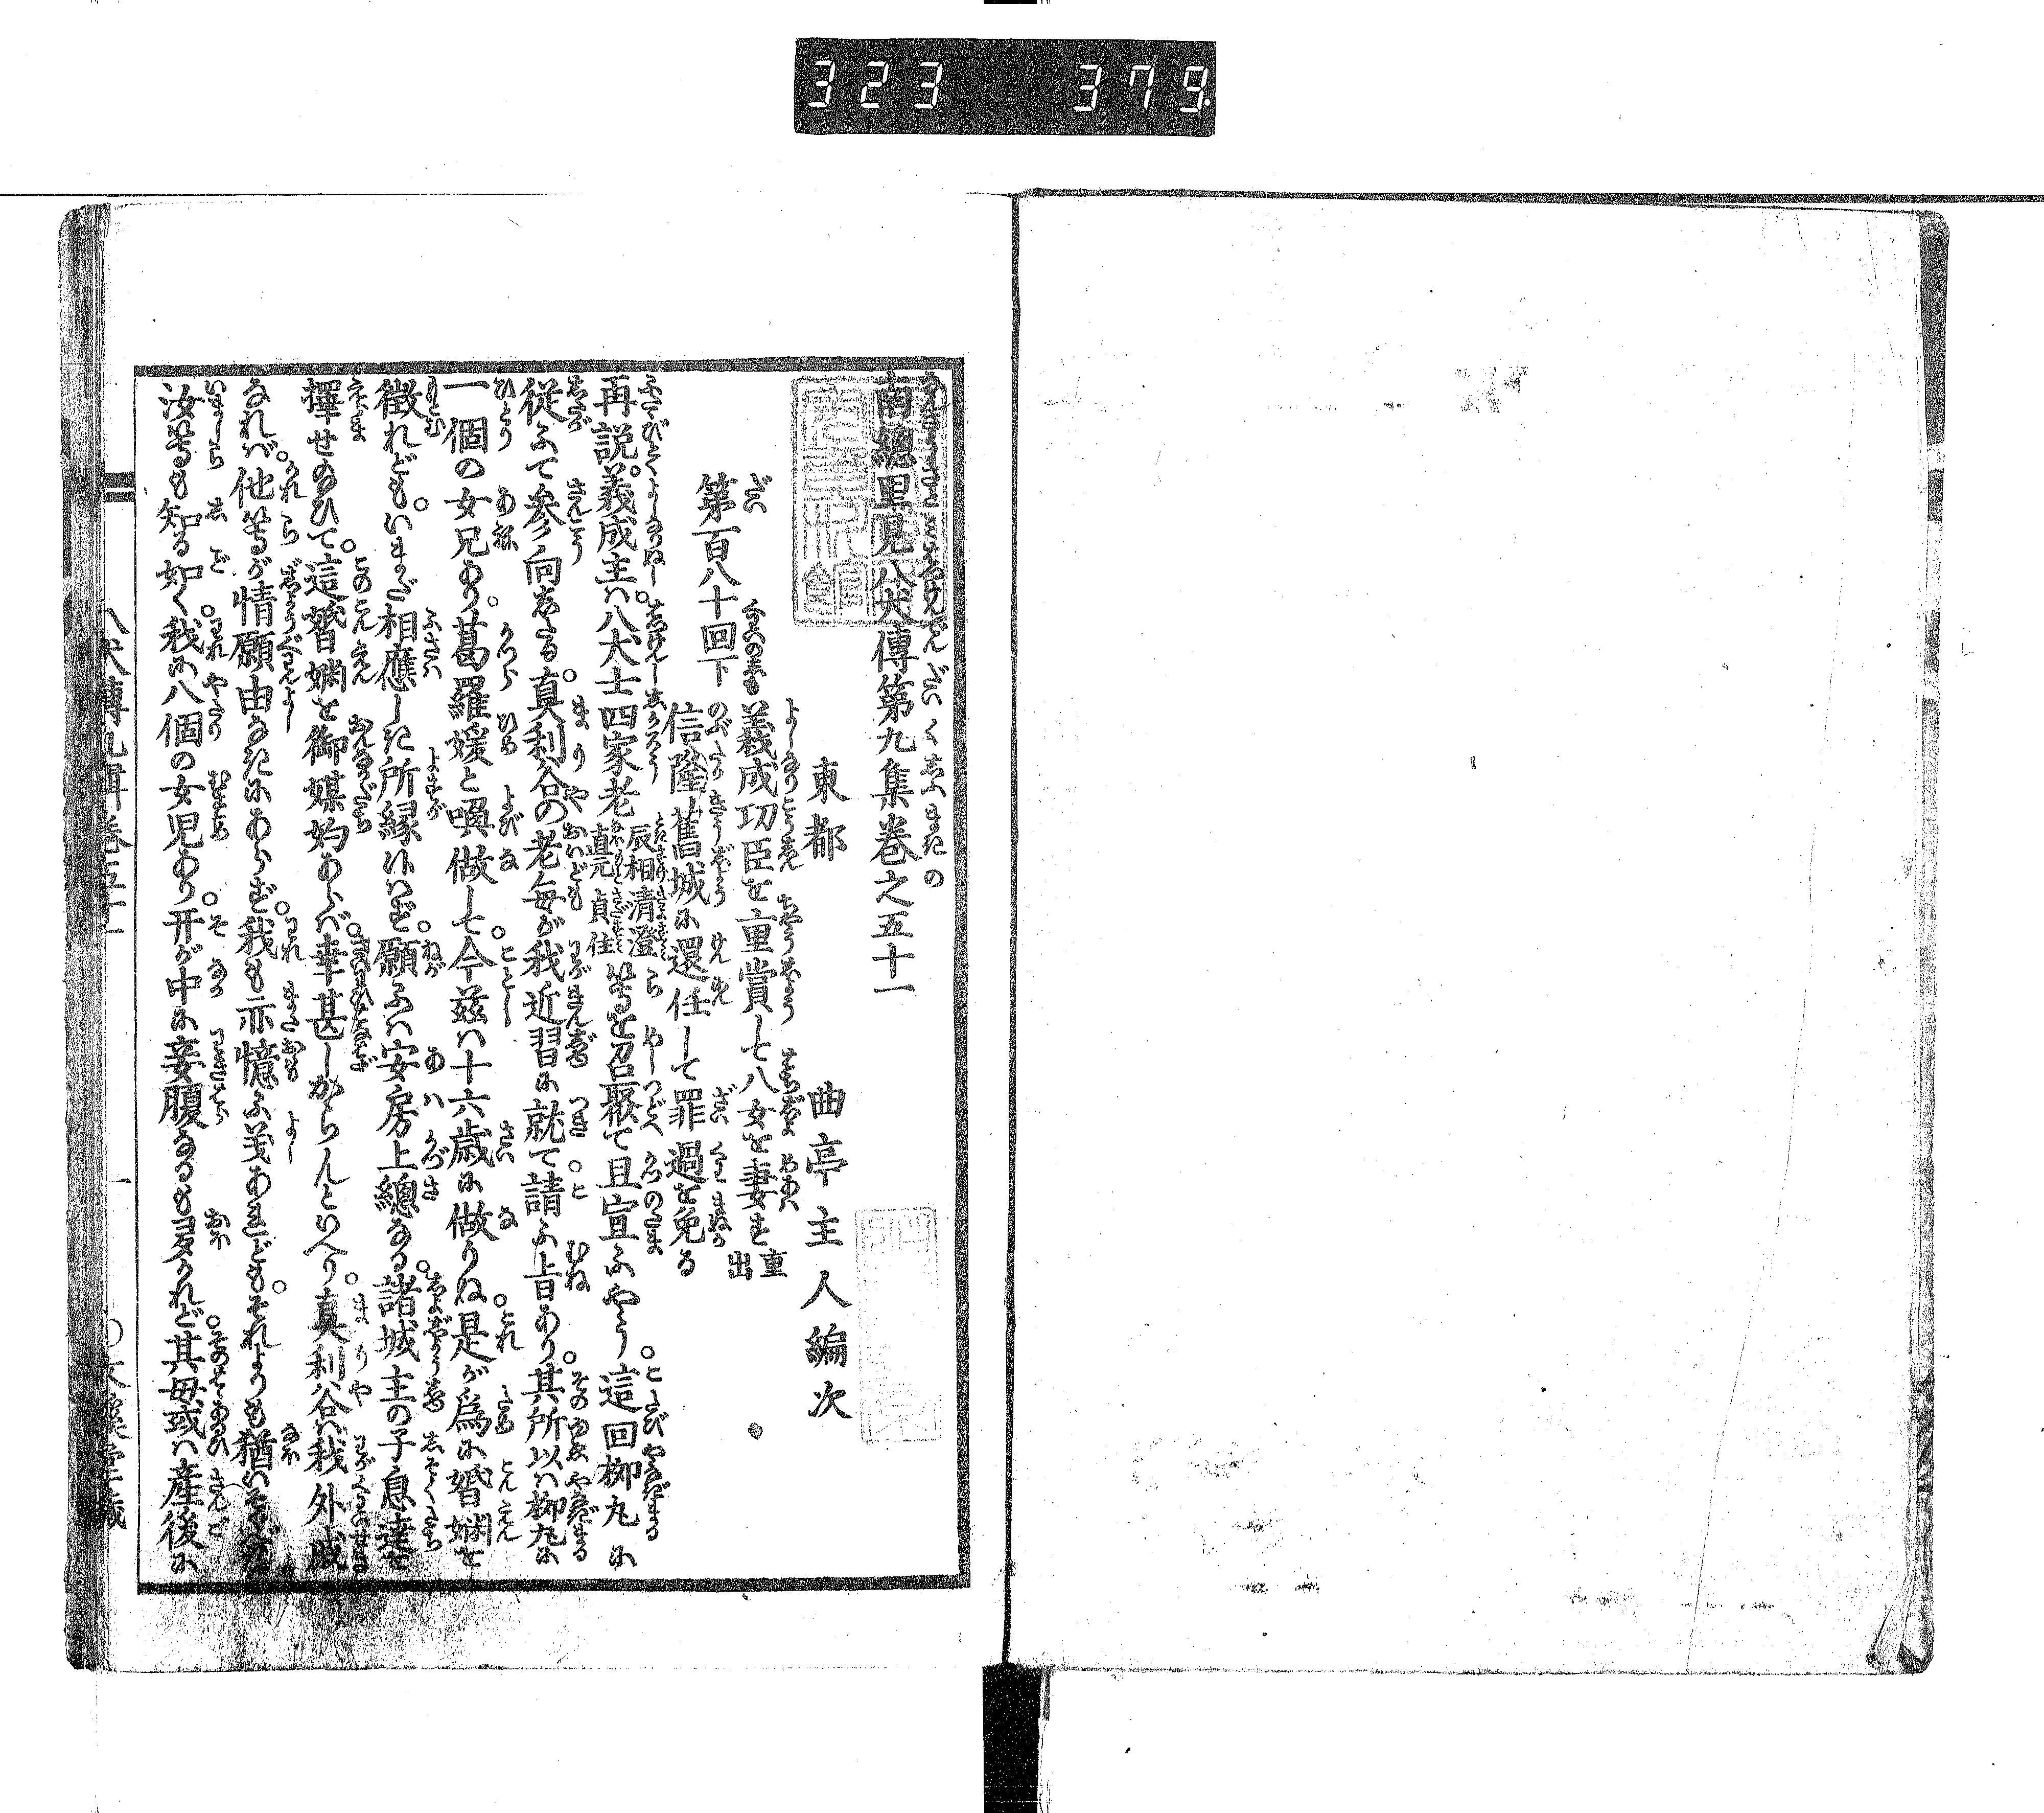 323 379
南總里見八犬傳第九集巻之五十一
東都 曲亭主人編次
第百八十回下
義成功臣を重賞して八女を妻す 重出
信隆舊城に還任して罪過を免る
再説。義成主ハ。八犬士四家老 辰相清澄直元貞住 等を召聚て且宣ふやう。這回柳丸に
従ふて参向したる。真利谷の老毎が我近習に就て。請ふ旨あり。其所以ハ柳丸に
一個の女兄あり。葛羅媛と喚做して。今茲ハ十六歳に做りぬ。是が為に婚姻を
徴れども。いまだ相應しき所縁侍はず。願ふハ安房上總なる。諸城主の子息達を
擇せ給ひて。這婚姻を御媒妁あらバ。幸甚しからんといへり。真利谷ハ我外戚
なれバ。他等が情願由なきにあらず。我も亦憶ふ義あれども。それよりも猶いそぐ
汝等も知る如く。我に八個の女児あり。开が中に妾腹なるも多かれど。其母或ハ産後に
八犬傳九輯巻五十一 一 ○文溪堂藏